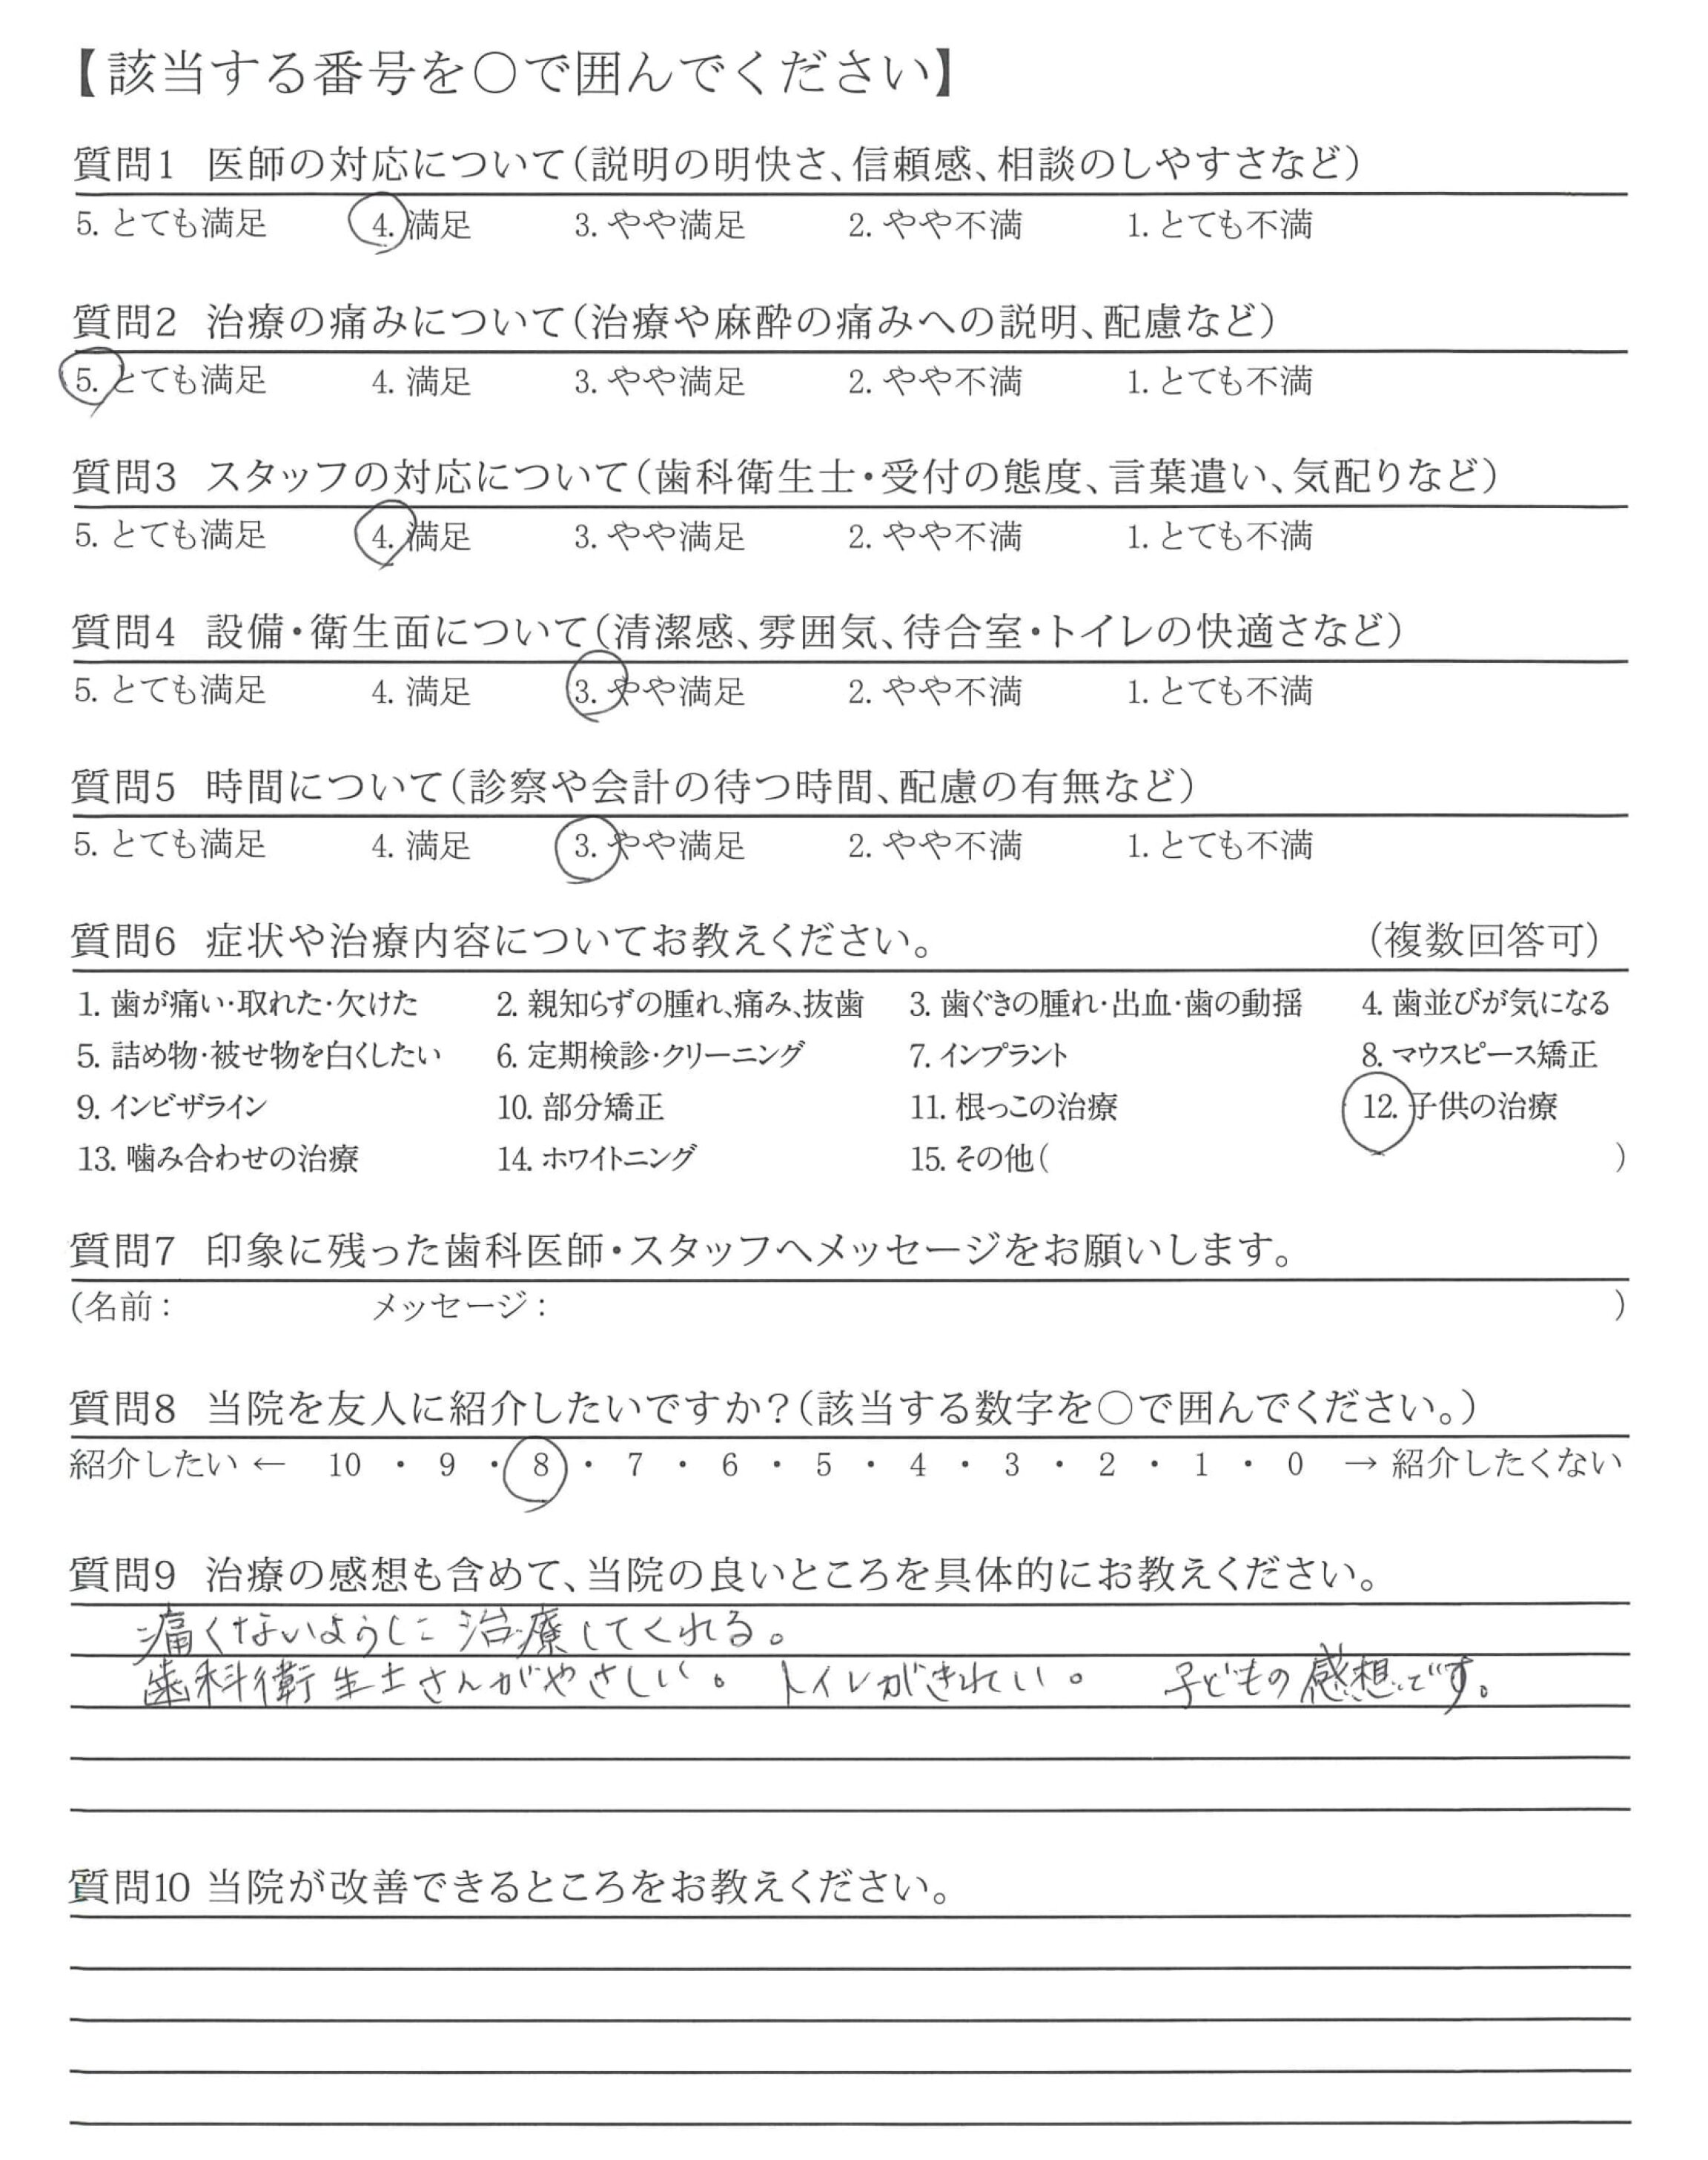 【該当する番号を○で囲んでください】
質問1 医師の対応について(説明の明快さ、信頼感、相談のしやすさなど)
5. とても満足 4. 満足 3. やや満足 2. やや不満 1. とても不満
質問2 治療の痛みについて(治療や麻酔の痛みへの説明、配慮など)
5. とても満足 4. 満足 3. やや満足 2. やや不満 1. とても不満
質問3 スタッフの対応について(歯科衛生士・受付の態度、言葉遣い、気配りなど)
5. とても満足 4. 満足 3. やや満足 2. やや不満 1. とても不満
質問4 設備・衛生面について(清潔感、雰囲気、待合室・トイレの快適さなど)
5. とても満足 4. 満足 3. やや満足 2. やや不満 1. とても不満
質問5 時間について(診察や会計の待つ時間、配慮の有無など)
5. とても満足 4. 満足 3. やや満足 2. やや不満 1. とても不満
質問6 症状や治療内容についてお教えください。 (複数回答可)
1. 歯が痛い・取れた・欠けた 2. 親知らずの腫れ、痛み、抜歯 3. 歯ぐきの腫れ・出血・歯の動揺 4. 歯並びが気になる
5. 詰め物・被せ物を白くしたい 6. 定期検診・クリーニング 7. インプラント 8. マウスピース矯正
9. インビザライン 10. 部分矯正 11. 根っこの治療 12. 子供の治療
13. 噛み合わせの治療 14. ホワイトニング 15. その他( )
質問7 印象に残った歯科医師・スタッフへメッセージをお願いします。
(名前: メッセージ: )
質問8 当院を友人に紹介したいですか?(該当する数字を○で囲んでください。)
紹介したい ← 10 ・ 9 ・ 8 ・ 7 ・ 6 ・ 5 ・ 4 ・ 3 ・ 2 ・ 1 ・ 0 → 紹介したくない
質問9 治療の感想も含めて、当院の良いところを具体的にお教えください。
痛くないように治療してくれる。
歯科衛生士さんがやさしい。 トイレがきれい。 子どもの感想です。
質問10 当院が改善できるところをお教えください。